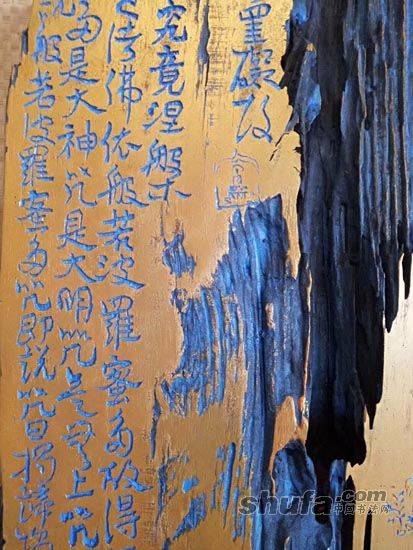 罣礙故
究竟涅槃
諸佛依般若波羅蜜多故得
多是大神咒是大明咒是無上咒
說般若波羅蜜多咒即說咒曰揭諦揭
shufa.com
中国书法网